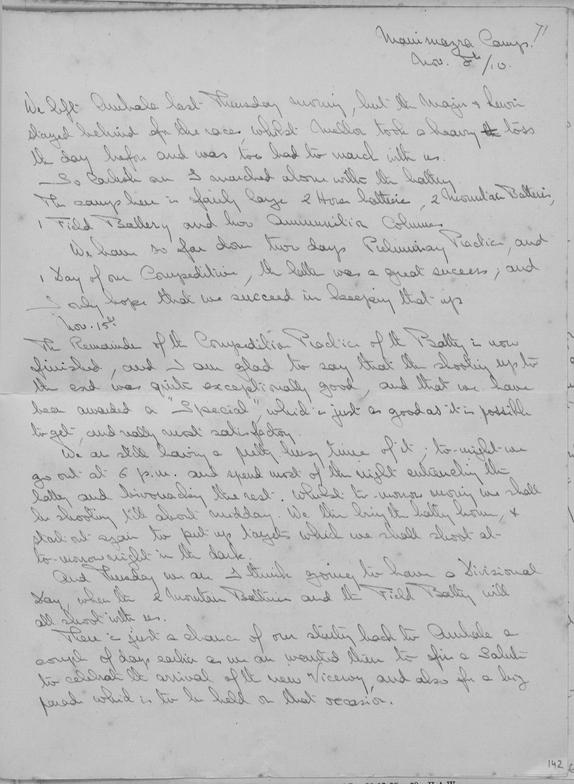 71
Manimazra Camp.
Nov. 8th/10.
We left Umbala last Thursday morning, but the Major &
stayed behind for the races whilst Mellor took a heavy toss
the day before and was too bad to march with us.
So and I marched alone with the battery.
The camp here is fairly large 2 Horse batteries, 2 Mountain Batteries,
1 Field Battery and two Ammunition Columns
We have so far done two days Preliminary Practice, and
1 Day of our Competition, the latter was a great success, and
I only hope that we succeed in keeping that up
Nov. 15th
The Remainder of the Competition Practice of the Battery is now
finished, and I am glad to say that the shooting up to
the end was quite exceptionally good, and that we have
been awarded a "Special", which is just as good as it is possible
to get, and really most satisfactory.
We are still having a pretty busy time of it, to-night we
go out at 6 p.m. and spend most of the night entrenching the
battery and bivouacking the rest. Whilst to-morrow morning we shall
be shooting till about midday. We then bring the battery home, &
start out again to put up targets which we shall shoot at
to-morrow night in the dark.
And Thursday we are I think going to have a Divisional
Day, when the 2 Mountain Batteries and the Field Battery will
all shoot with us.
There is just a chance of our starting back to Umbala a
couple of days earlier as we are wanted there to fire a Salute
to celebrate the arrival of the new Viceroy, and also for a big
parade which is to be held on that occasion.
142